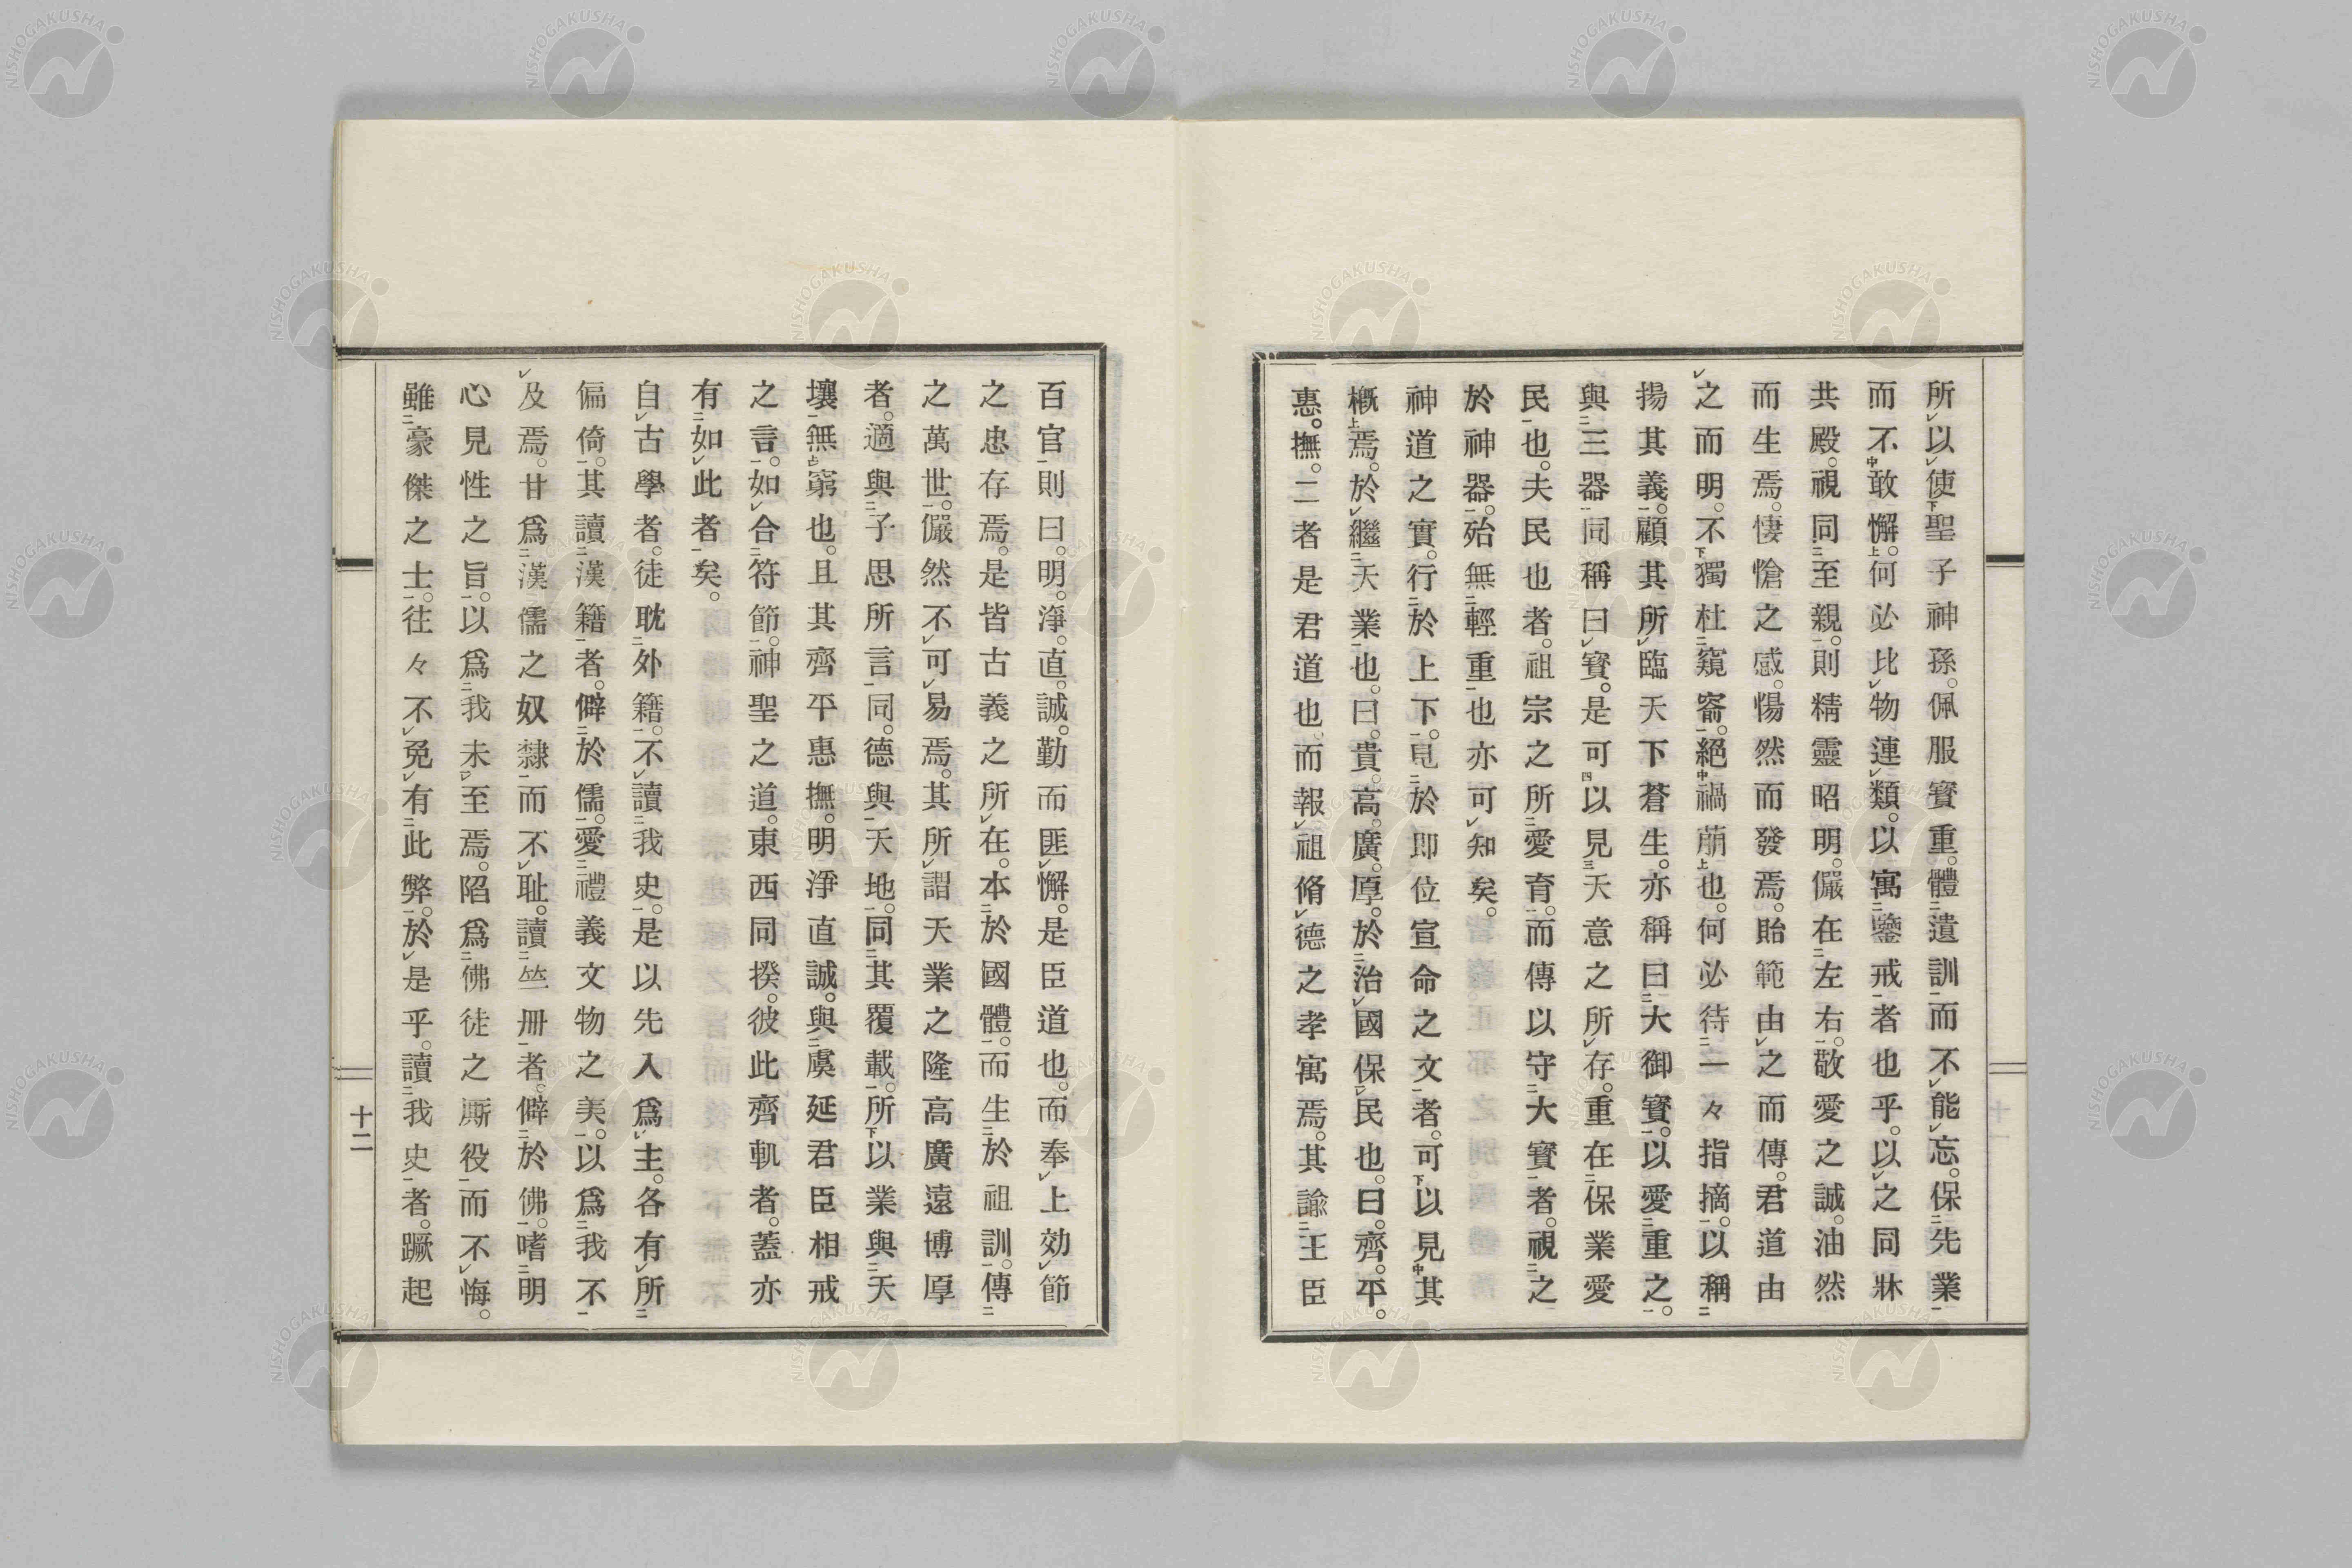 所以使聖子神孫。佩服寶重。體遺訓而不能忘。保先業
而不敢懈。何必比物連類。以寓鑒戒者也乎。以之同牀
共殿。視同至親。則精靈昭明。儼在左右。敬愛之誠。油然
而生焉。悽愴之感。惕然而發焉。貽範由之而傳。君道由
之而明。不獨杜窺窬。絕禍萠也。何必待一々指摘。以稱
揚其義。顧其所臨天下蒼生。亦稱曰大御寶。以愛重之。
與三器同稱曰寶。是可以見天意之所存。重在保業愛
民也。夫民也者。祖宗之所愛育。而傳以守大寶者。視之
於神器。殆無輕重也亦可知矣。
神道之實。行於上下。見於即位宣命之文者。可以見其
槪焉。於繼天業也。曰。貴。高。廣。厚。於治國保民也。曰。齊。平。
惠。撫。二者是君道也。而報祖脩德之孝寓焉。其諭王臣
百官則曰。明。淨。直。誠。勤而匪懈。是臣道也。而奉上効節
之忠存焉。是皆古義之所在。本於國體。而生於祖訓。傳
之萬世。儼然不可易焉。其所謂天業之隆高廣遠博厚
者。適與子思所言同。德與天地。同其覆載。所以業與天
壤無窮也。且其齊平惠撫。明淨直誠。與虞延君臣相戒
之言。如合符節。神聖之道。東西同揆。彼此齊軌者。蓋亦
有如此者矣。
自古學者。徒耽外籍。不讀我史。是以先入爲主。各有所
偏倚。其讀漢籍者。僻於儒。愛禮義文物之美。以爲我不
及焉。甘爲漢儒之奴隸而不耻。讀竺册者。僻於佛。嗜明
心見性之旨。以爲我未至焉。陷爲佛徒之厮役而不悔。
雖豪傑之士。往々不免有此弊。於是乎。讀我史者。蹶起
十二
NISHOGAKUSHA